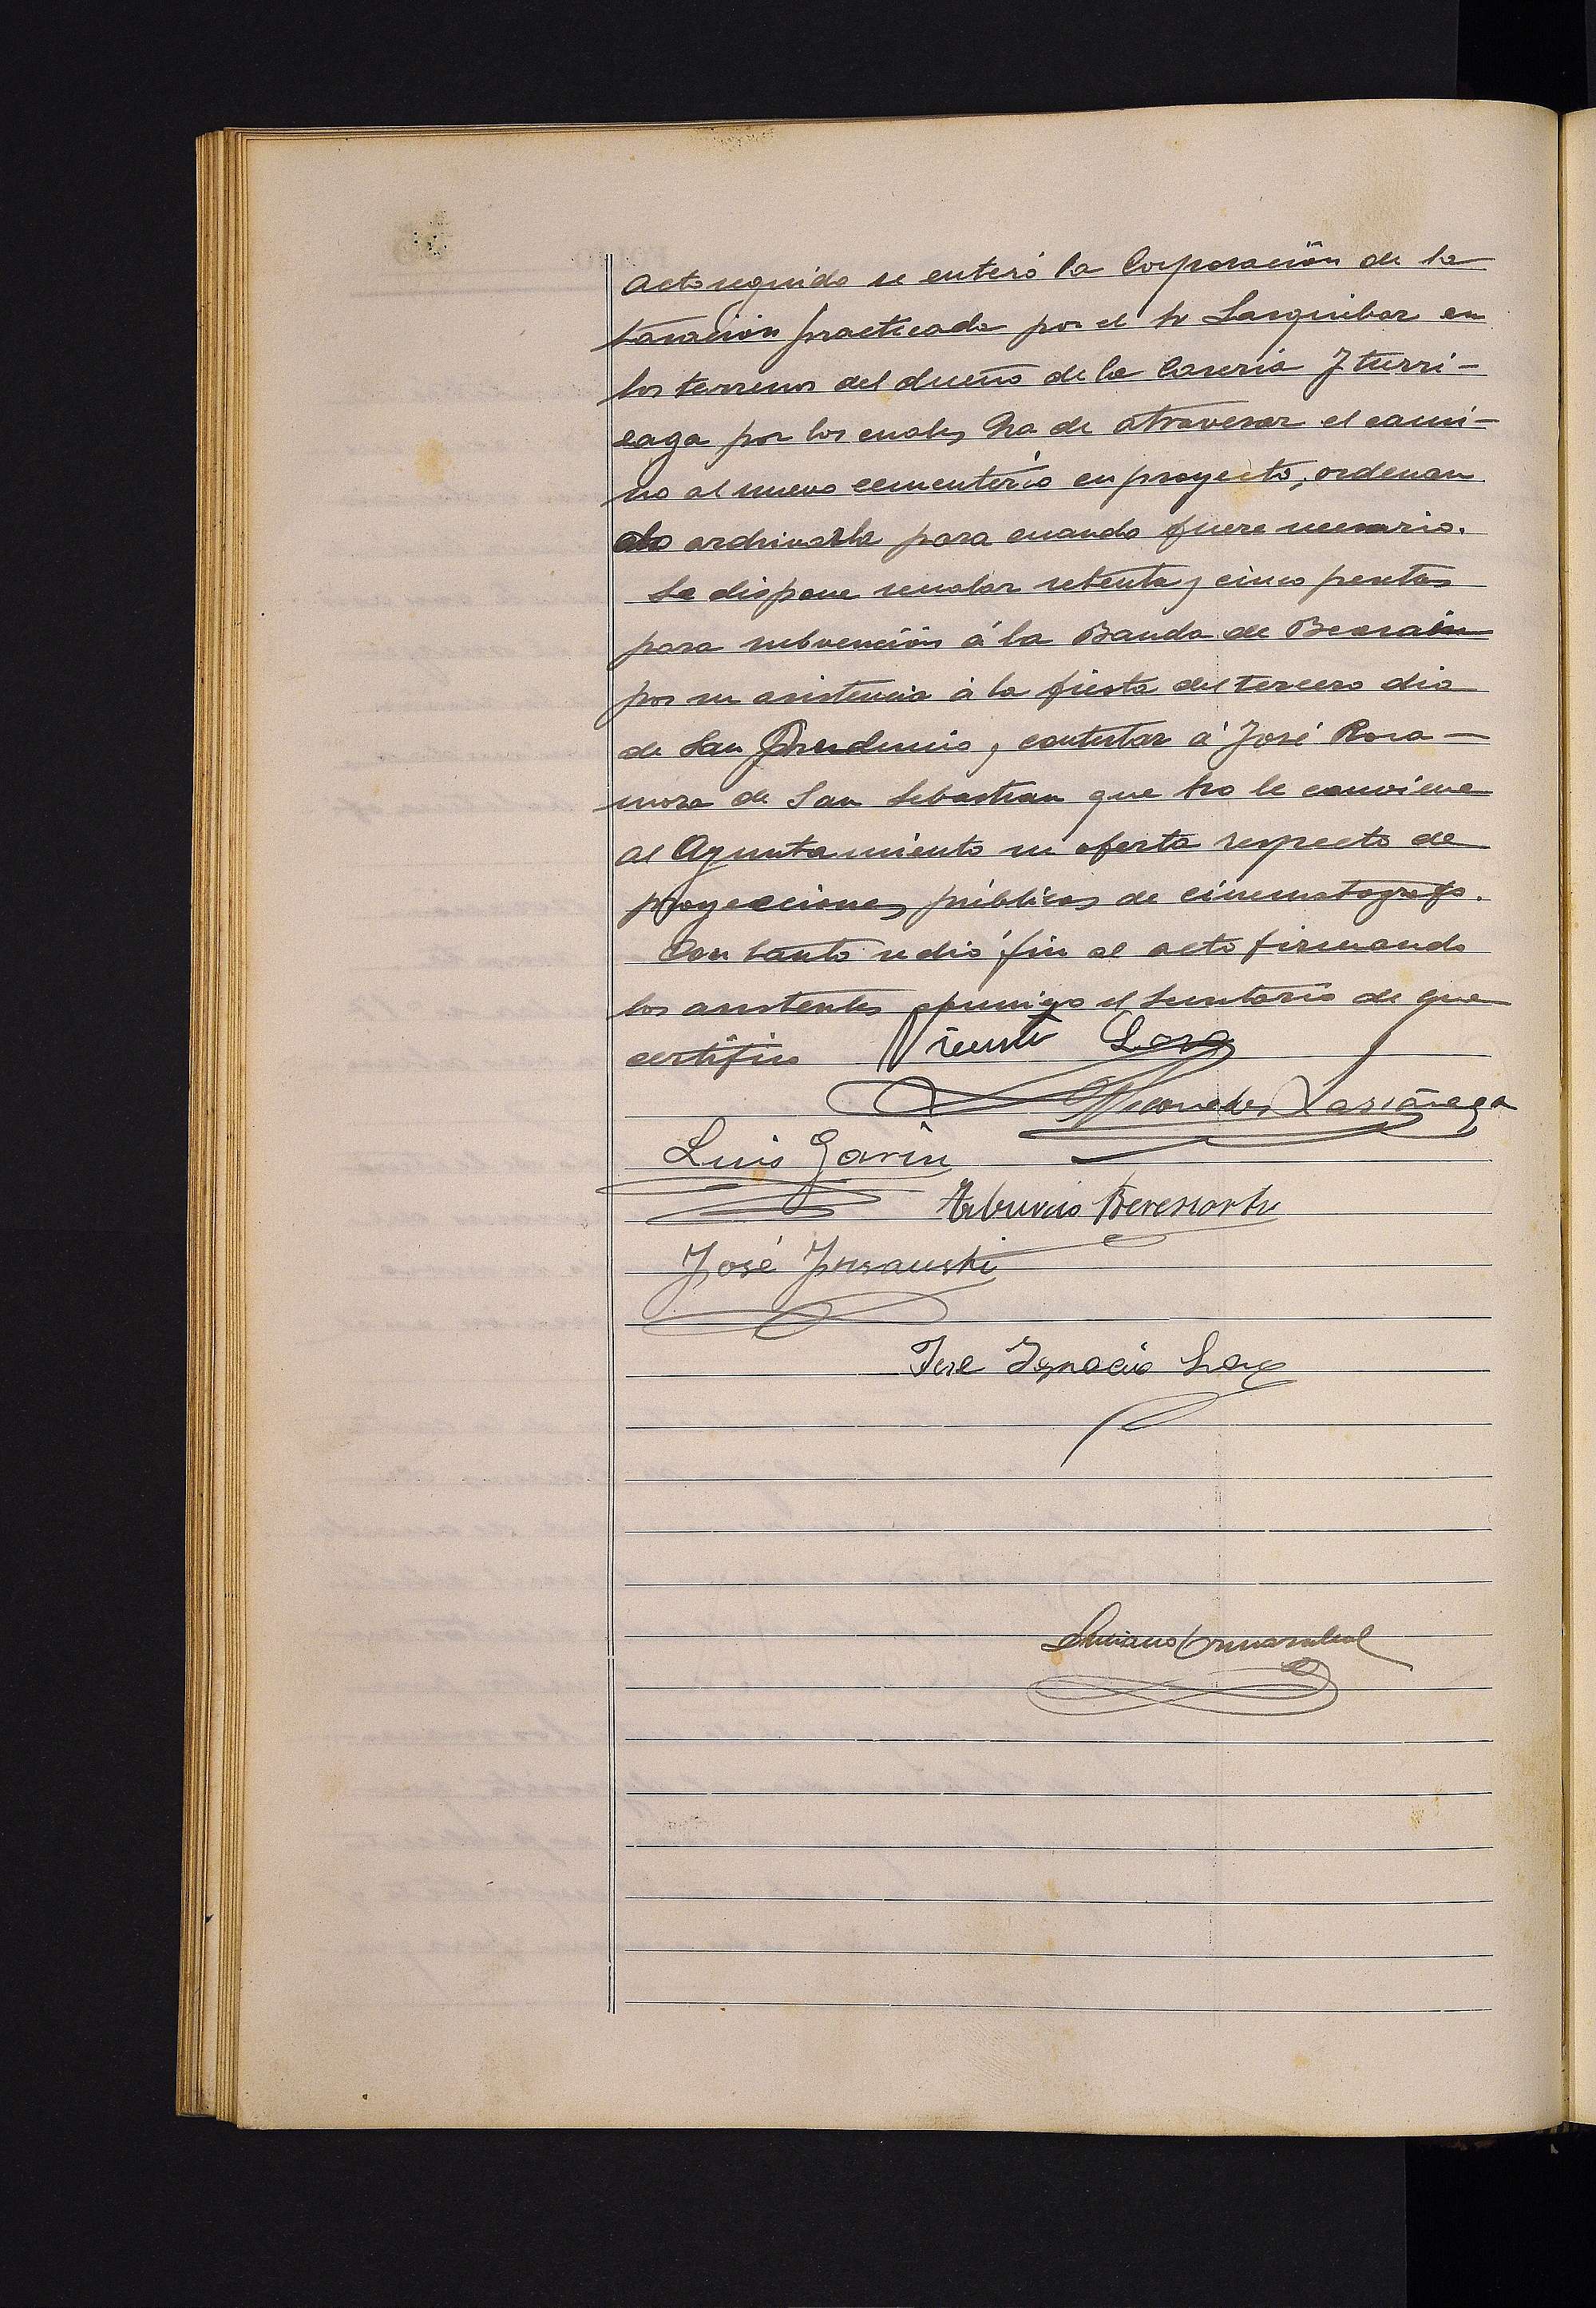 Acto seguido se enteró la Corporación de la
tasación practicada por el Sr Lasquibar en
los terrenos del dueño de la Caseria Yturri-
eaga por los cuales ha de atravesar el cami-
no al nuevo cementerio en proyecto, ordenan
do archivarla para cuando fuere necesario.
Se dispone señalar setenta y cinco pesetas
para subvención á la Banda de Beasain
por su asistencia á la fiesta del tercero dia
de San Prudencio, contestar á José Rosa-
mora de San Sebastian que no le conviene
al Ayuntamiento su oferta respecto de
proyecciones públicas de cinematografo.
Con tanto se dió fin al acto firmando
los asistentes conmigo el Secretario de que
certifico Vicente
Nicomedes
Luis Garin
Tiburcio Beresiartu
José
José Ignacio
Luciano